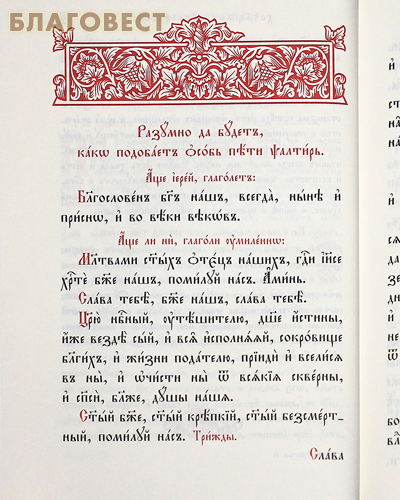 БЛАГОВЕСТ
Разꙋ́мно да бꙋ́детъ,
кáкѡ подобáетъ ѻ҆сóбь пѣ́ти ѱалти́рь.
А҆́ще і҆ерéй, глагóлетъ:
Бл҃гословéнъ бг҃ъ нáшъ, всегдà, ны́нѣ и҆
при́снѡ, и҆ во вѣ́ки вѣкѡ́въ.
А҆́ще ли нѝ, глагóли ᲂу҆ми́леннѡ:
Мл҃твами ст҃ы́хъ ѻ҆тє́цъ нáшихъ, гдⷭ҇и і҆и҃се
хрⷭ҇тѐ бж҃е нáшъ, поми́лꙋй нáсъ. А҆ми́нь.
Слáва тебѣ̀, бж҃е нáшъ, слáва тебѣ̀.
Цр҃ю̀ нбⷭ҇ный, ᲂу҆тѣ́шителю, дш҃е и҆́стины,
и҆́же вездѣ̀ сы́й, и҆ всѧ̑ и҆сполнѧ́ѧй, сокрóвище
бл҃ги́хъ, и҆ жи́зни подáтелю, прїидѝ и҆ всели́сѧ
въ ны̀, и҆ ѡ҆чи́сти ны̀ ѿ всѧ́кїѧ сквéрны,
и҆ сп҃сѝ, бл҃же, дꙋ́шы нáшѧ.
Ст҃ы́й бж҃е, ст҃ы́й крѣ́пкїй, ст҃ы́й безсмéрт-
ный, поми́лꙋй нáсъ. Три́жды.
Слáва